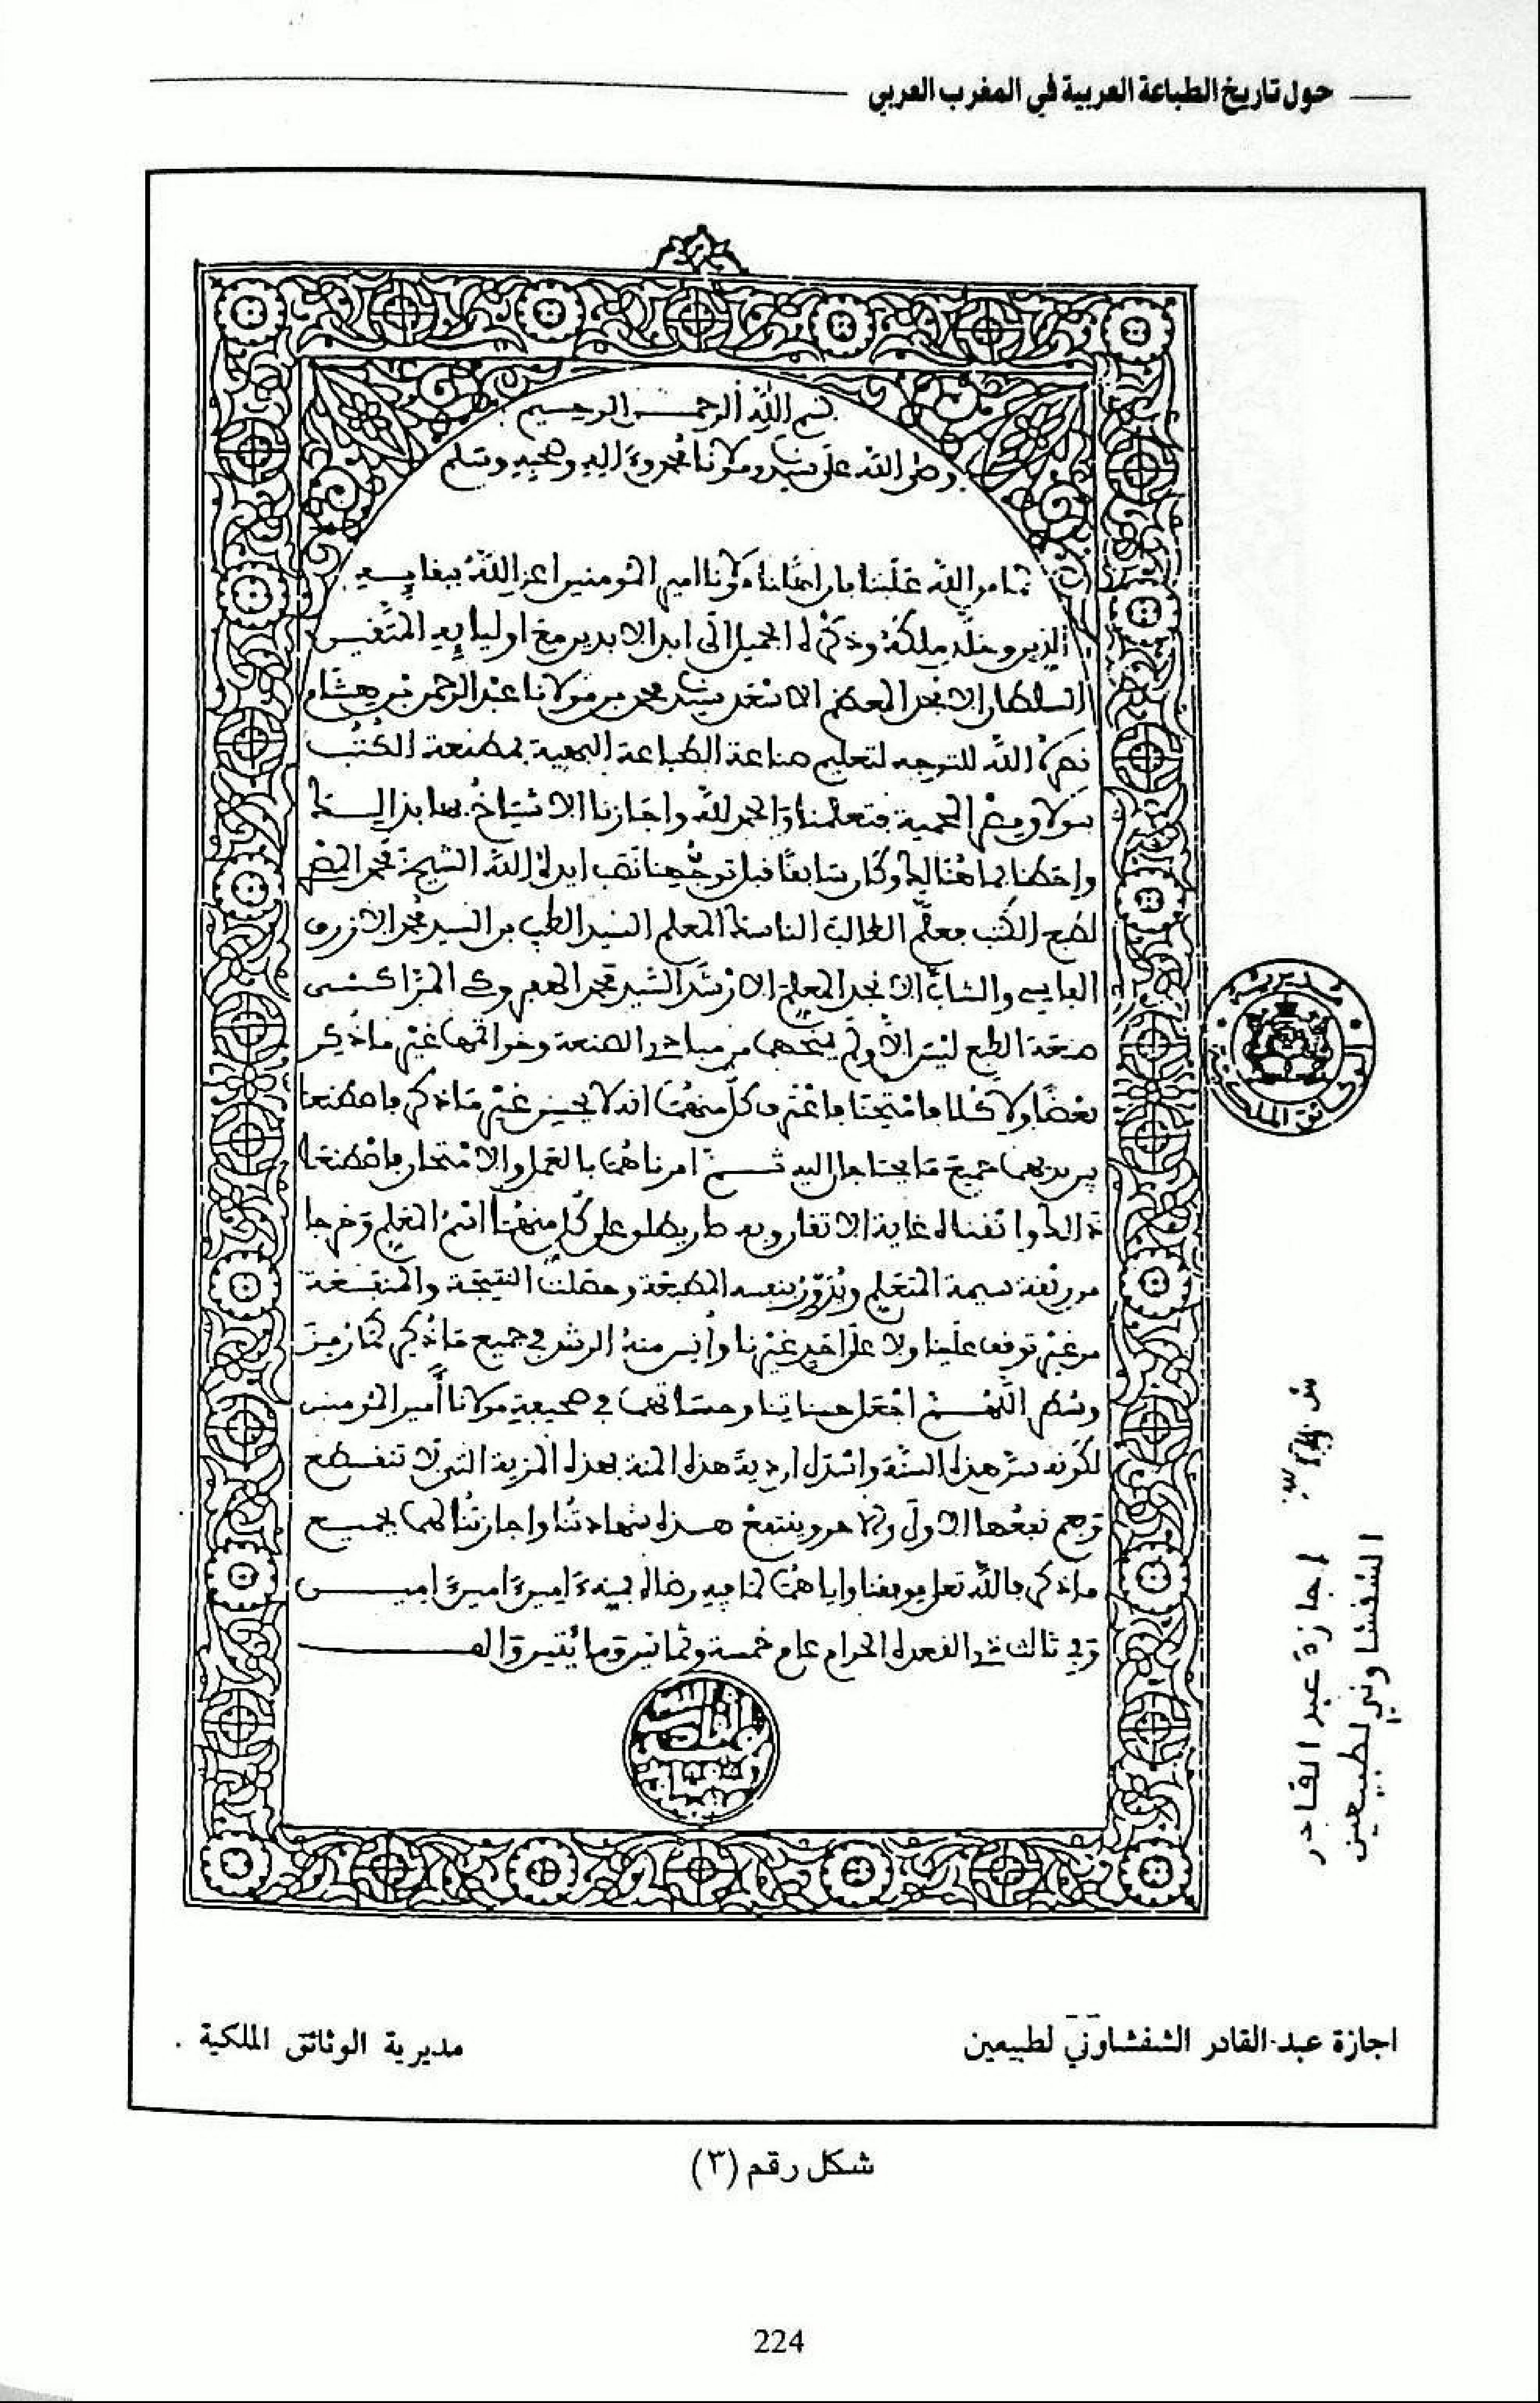 حول تاريخ الطباعة العربية في المغرب العربي
بسم الله الرحمن الرحيم
وصلى الله على سيدنا ومولانا محمد وءاله وصحبه وسلم
لما من الله علينا بان اهلنا مولانا امير المومنين اعز الله ببقايه
الدين وخلد ملكه وذكره الجميل الى ابد الابدين مع اوليايه المتقين
السلطان الامجد المعظم الاسعد سيدي محمد بن مولانا عبد الرحمن بن هشام
نصره الله للتوجه لتعليم صناعة الطباعة البهية بمصنعة الكتب
ببولاق مصر المحمية فتعلمنا والحمد لله واجازنا الاشياخ بها بذالك
واحطنا بما هنالك وكان سابقا قبل توجهنا نصب ايده الله الشيخ محمد المصري
لطبع الكتب معلم الطالب الناسك المعلم السيد الطيب بن السيد محمد الازرق
الفاسي والشاب الانجد المعلم الارشد السيد محمد المراكشي
صنعة الطبع ليس الا ولم ينجحهما من مبادي الصنعة وخواتمها غير ما ذكر
بعضا ولا كلا فامتحنا فاعترف كل منهما انه لا يحسن غير ما ذكر فاصطنعنا
بين يديهما جميع ما يحتاجان اليه ثم امرناهما بالعمل والامتحان فاصطنعا
ذالك واتقناه غاية الاتقان وبه صار يطلق على كل منهما اسم المعلم وخرجا
من ربقة سيمة المتعلم ويزور بنفسه المطبعة وحصلت النتيجة والمنفعة
من غير توقف علينا ولا على احد غيرنا وأنس منه الرشد في جميع ما ذكر كما رمز
وسطر اللهم اجعل حسناتنا وحسناتهما في صحيفة مولانا أمير المومنين
لكونه سن هذه السنة واسدل اردية هذه المنة بهذه المزية التي لا تنقطع
وعم نفعها الاول والاخر وينتفع هذه شهادتنا واجازتنا لهما بجميع
ما ذكر فالله تعلى يوفقنا واياهما لما فيه رضاه بمنه ءامين ءامين ءامين امين
وفي ثالث ذي القعدة الحرام عام خمسة وثمانين ومايتين والف
مديرية الوثائق الملكية
اجازة عبد القادر
الشفشاوني لطبيعين
اجازة عبد القادر الشفشاوني لطبيعين
مديرية الوثائق الملكية .
شكل رقم (٣)
224